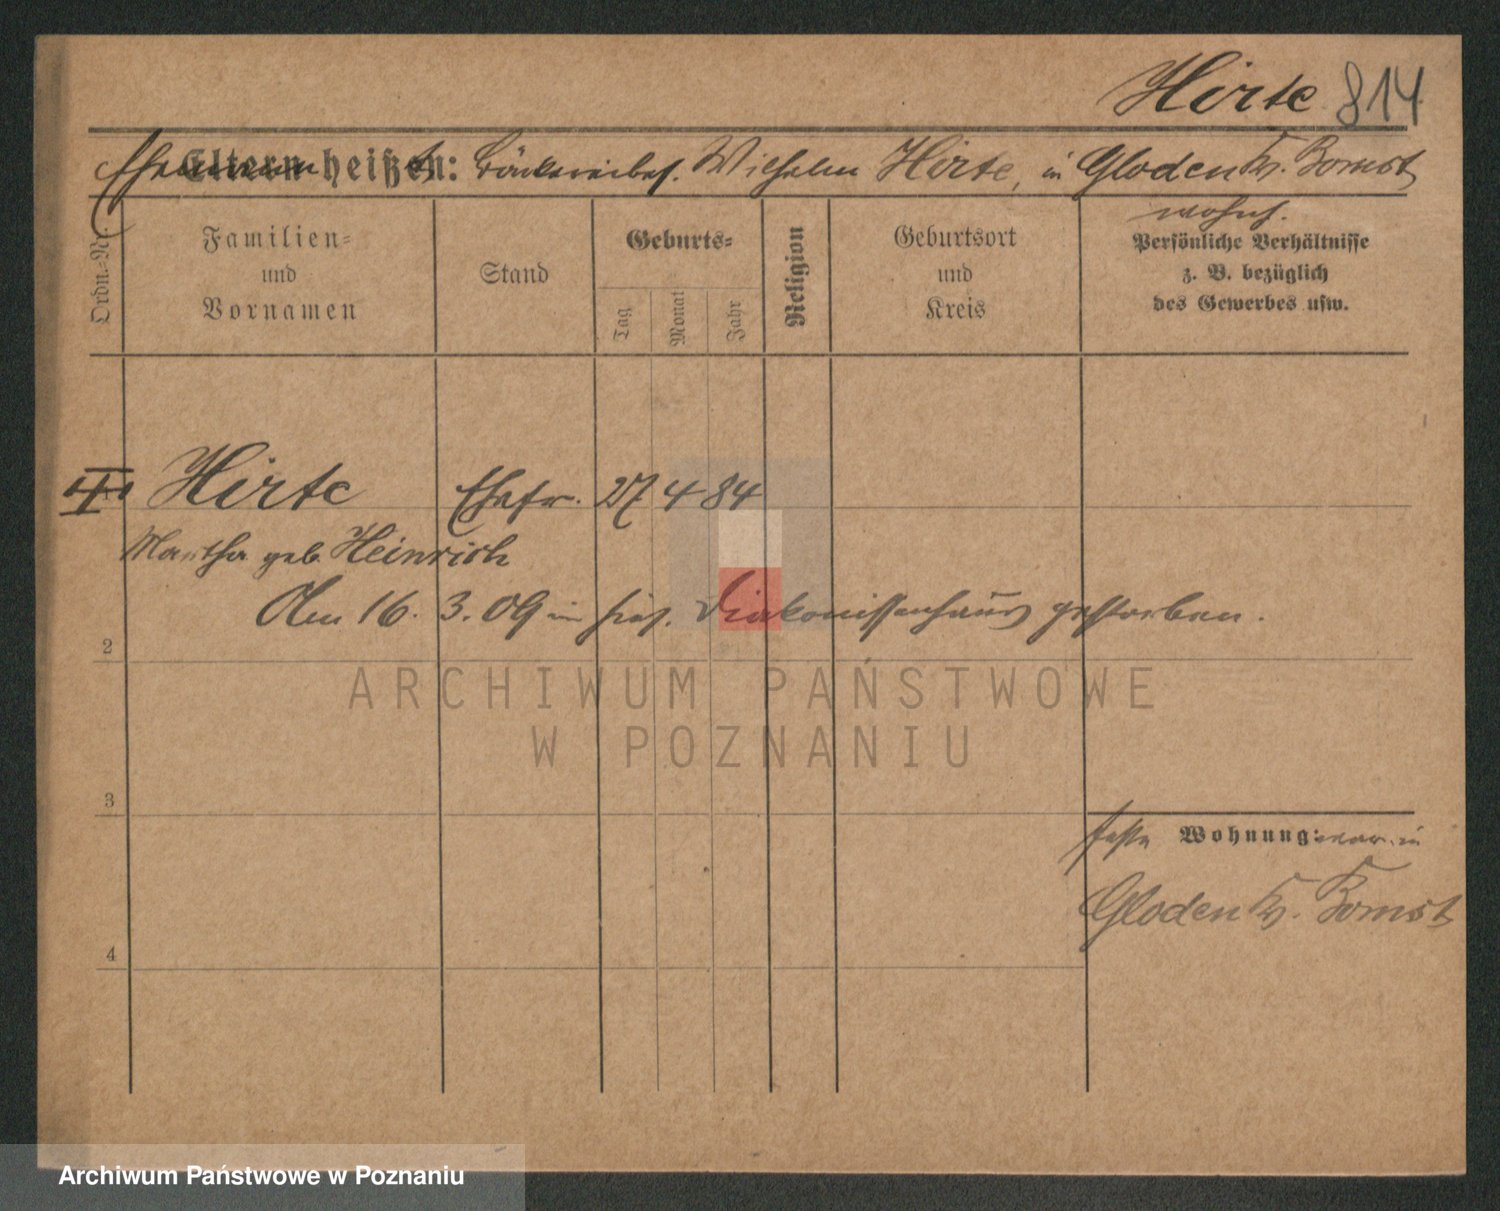 Hirte 814
Eltern heißen:
Ehemann d. Bäckereibes. Wilhelm Hirte, in Gloden Kr. Bomst
wohnh.
Ordn.-Nr.
Familien-
und
Vornamen
Stand
Geburts-
Tag
Monat
Jahr
Religion
Geburtsort
und
Kreis
Persönliche Verhältnisse
z. B. bezüglich
des Gewerbes usw.
1 Hirte Ehefr. 27 4 84
Martha geb. Heinrich
Am 16. 3. 09 in hies. Diakonissenhaus gestorben.
2
ARCHIWUM PAŃSTWOWE
W POZNANIU
3
feste Wohnung: war in
Gloden Kr. Bomst
4
Archiwum Państwowe w Poznaniu